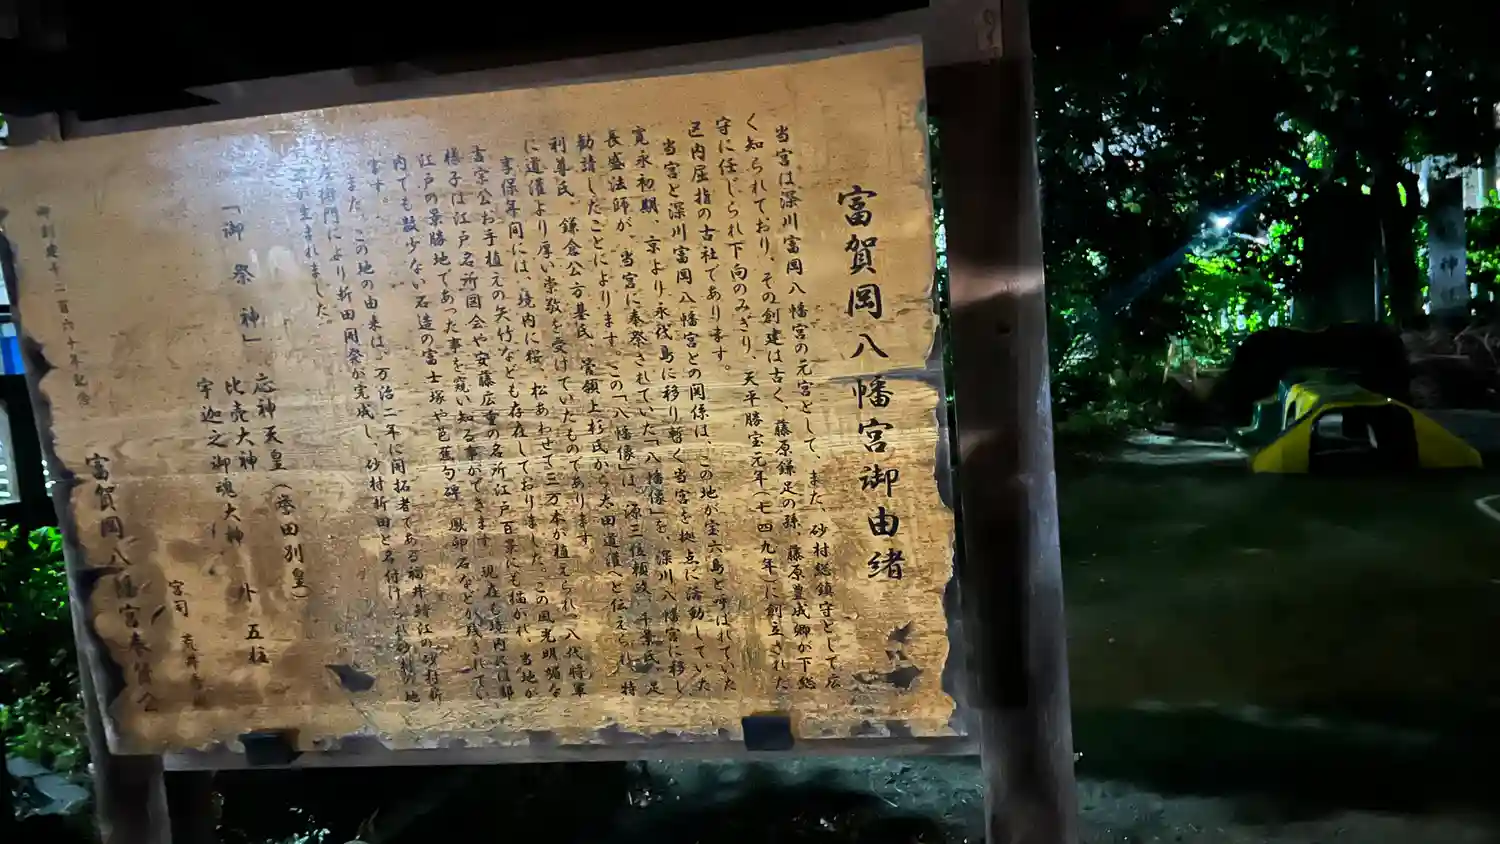 富賀岡八幡宮御由緒
当宮は深川富岡八幡宮の元宮として、また、砂村総鎮守として広
く知られており、その創建は古く、藤原鎌足の孫、藤原豊成卿が下総
守に任じられ下向のみぎり、天平勝宝元年(七四九年)に創立された
区内屈指の古社であります。
当宮と深川富岡八幡宮との関係は、この地が宝六島と呼ばれていた
寛永初期、京より永代島に移り暫く当宮を拠点に活動していた
長盛法師が、当宮に奉祭されていた「八幡像」を、深川八幡宮に移し
勧請したことによります。この「八幡像」は、源三位頼政、千葉氏、足
利尊氏、鎌倉公方基氏、管領上杉氏から太田道灌へと伝えられ、特
に道灌より厚い崇敬を受けていたものであります。
享保年間には、境内に桜、松あわせて三万本が植えられ、八代将軍
吉宗公お手植えの矢竹なども存在しておりました。この風光明媚な
様子は江戸名所図会や安藤広重の名所江戸百景にも描かれ、当地が
江戸の景勝地であった事を窺い知る事ができます。現在も境内には都
内でも数少ない石造の富士塚や芭蕉句碑、鳳卵石などが残されてい
ます。
また、この地の由来は、万治二年に開拓者である
門により新田開発が完成し、砂村新田と名付けられ
生まれました。
「御祭神」 応神天皇(誉田別皇)
比売大神
宇迦之御魂大神 外五柱
宮司 荒井
富賀岡八幡宮奉賛会
御創建千二百六十年記念
神社